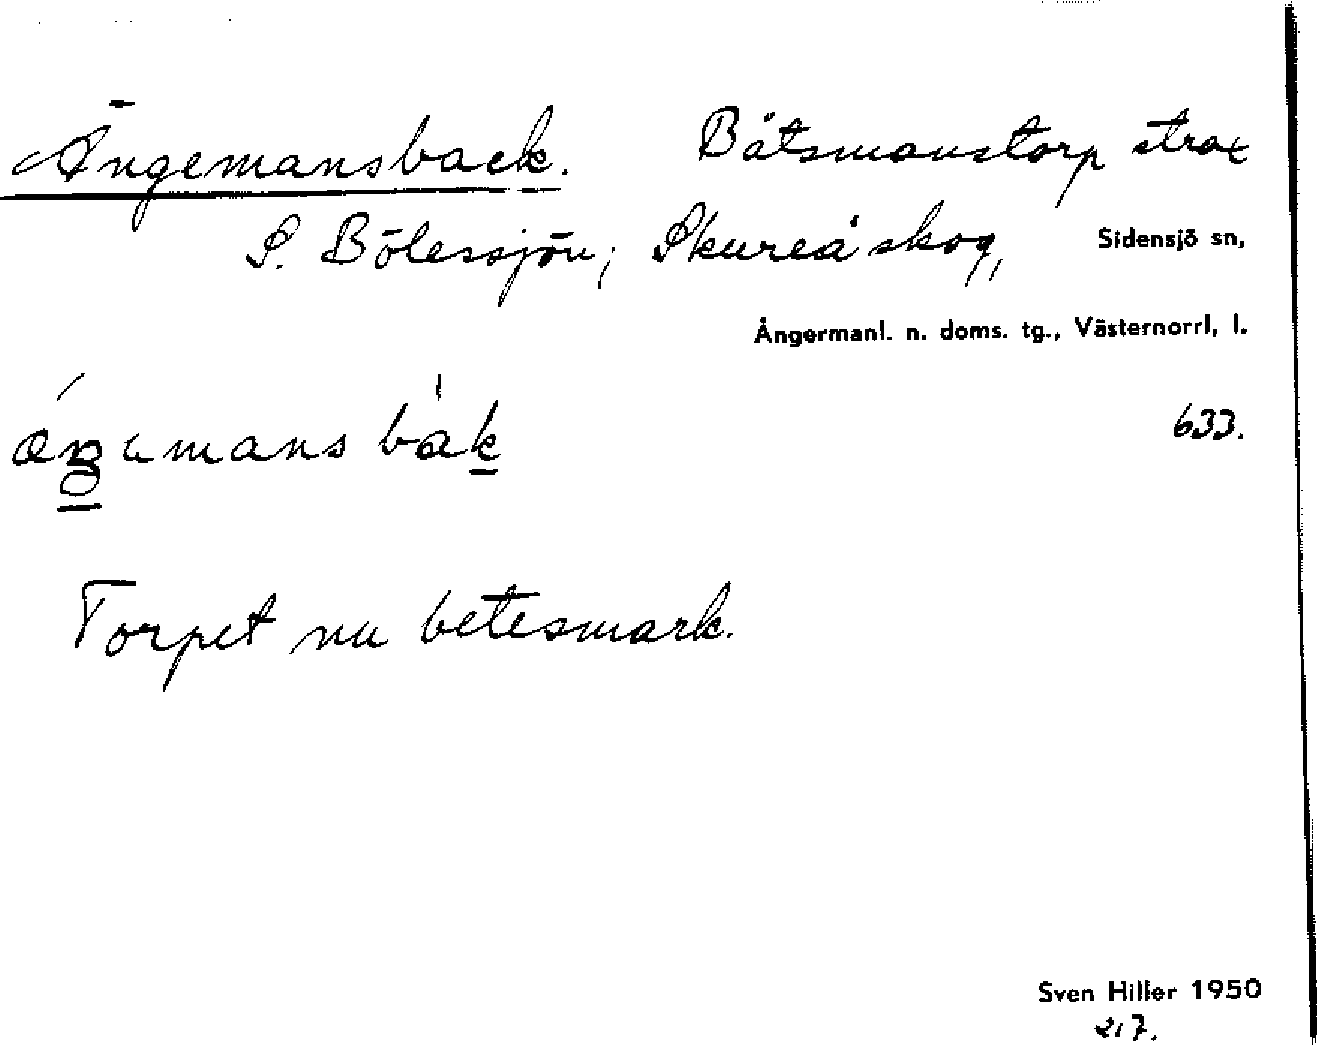 Ängemansback. Båtsmanstorp strax
S. Bölessjön; Skureå skog, Sidensjö sn,
Ångermanl. n. doms. tg., Västernorrl, l.
633.
Torpet nu betesmark.
Sven Hiller 1950
217.